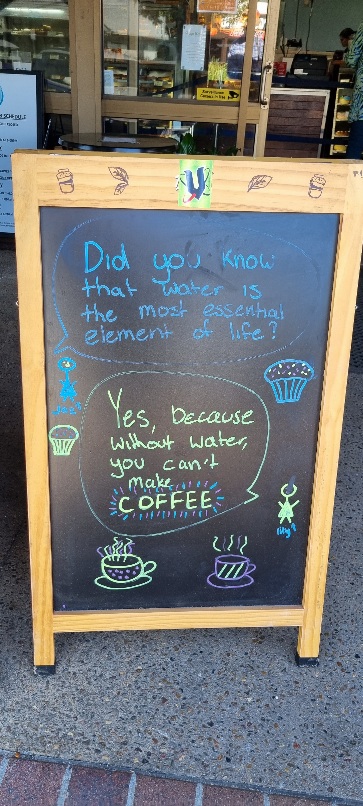 Did you know
that water is
the most essential
element of life?
Yes, because
without water,
you can't
make
COFFEE